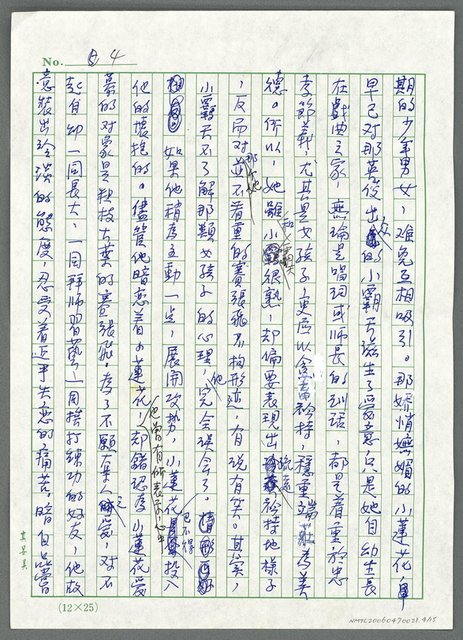 No. 4
期的少年男女，難免互相吸引。那嬌悄嫵媚的小蓮花，
早已對那英俊出眾的小霸天滋生了愛意，只是她自幼生長
在戲曲之家，無論是唱詞或師長的訓話，都是着重於忠
孝節義，尤其是女孩子，更應以含蓄矜持，穩重端莊為美
德。所以，她雖和小霸天很熟，却偏要表現出矜持地樣子
，反而對那她並不着重的賽張飛不拘形迹，有說有笑。其實，
小霸天不了解那類女孩子的心理，他完全誤會了。
如果他稍為主動一点，展開攻勢，小蓮花巴不得投入
他的懷抱的。儘管他暗恋着小蓮花，却錯認為小蓮花愛
慕的對象是粗枝大葉的賽張飛。為了不願奪人之愛，對不
起自幼一同長大，一同拜師習藝，一同捱打練功的好友，他故
意裝出冷淡的態度，忍受着近乎失恋的痛苦，暗自
(12×25)
NMTL20060470021.4/15